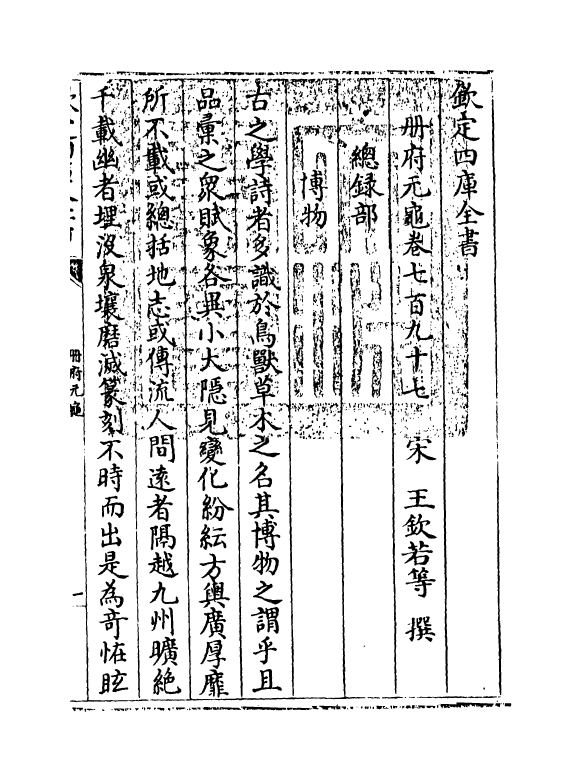 欽定四庫全書
冊府元龜卷七百九十七　宋　王欽若等　撰
總録部
博物
古之學詩者多識於鳥獸草木之名其博物之謂乎且
品彙之衆賦象各異小大隱見變化紛紜方輿廣厚靡
所不載或總括地志或傳流人間遠者隔越九州曠絶
千載幽者埋没泉壤磨滅篆刻不時而出是為奇恠眩
冊府元龜
一